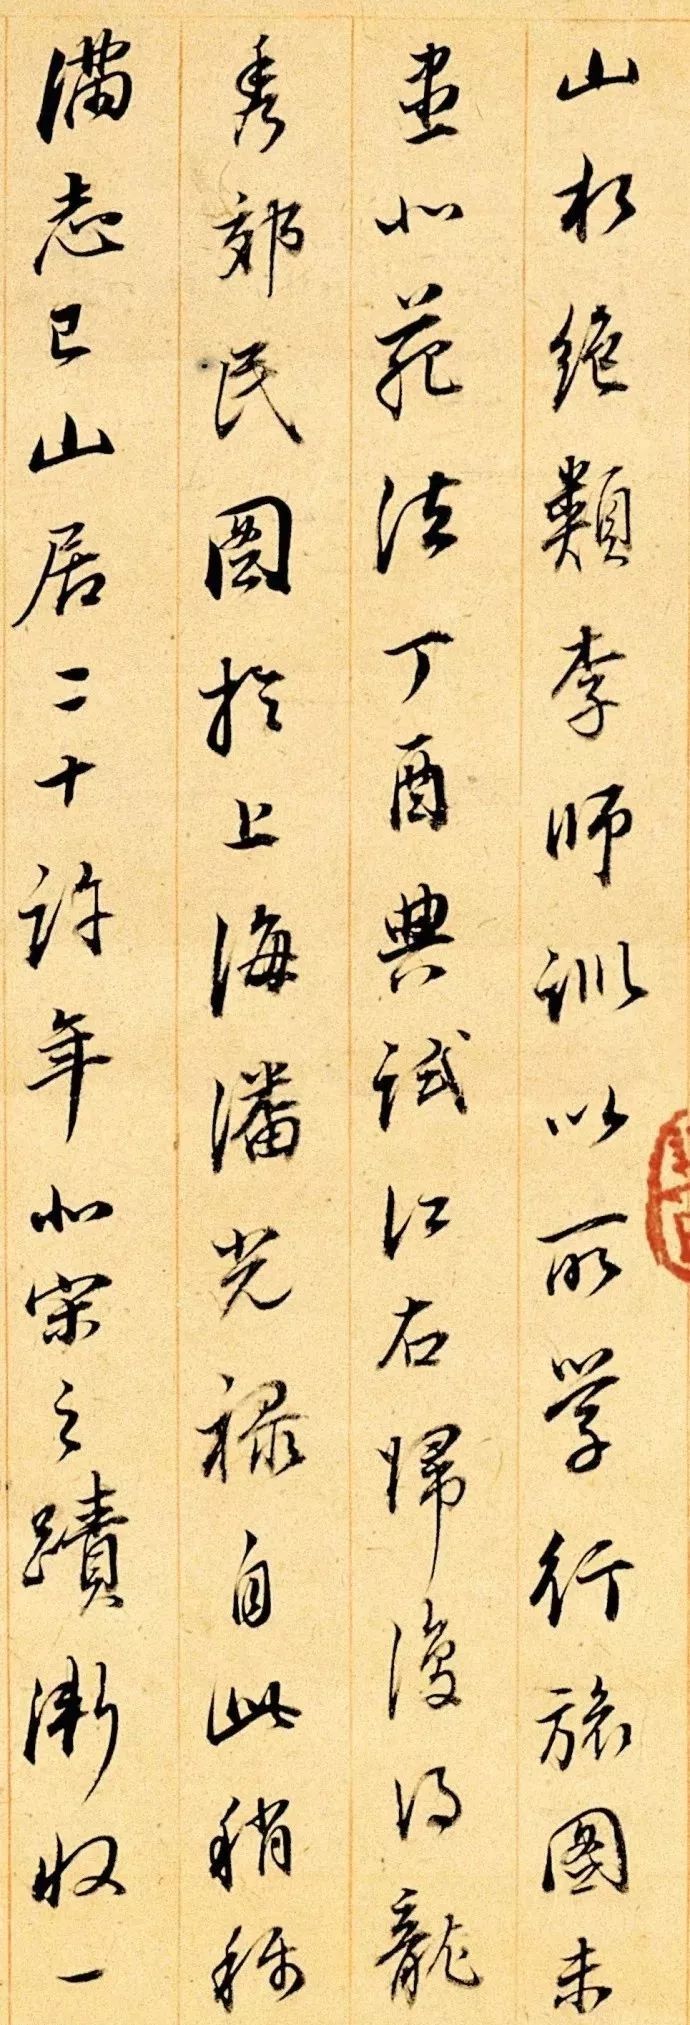 山水絕類李師訓以所學行旅圖未
盡北苑法丁酉典試江右歸復得龍
秀郊民圖於上海潘光祿自此稍稱
滿志已山居二十許年北宋之蹟漸收一